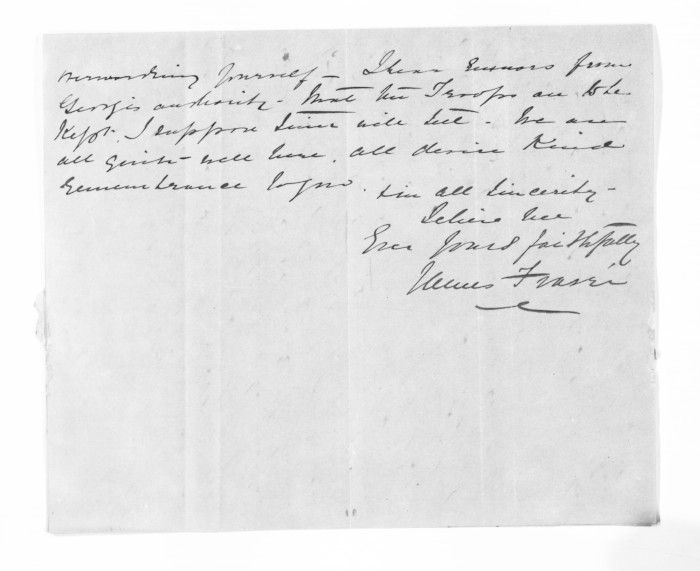 yourself - I hear rumours from
Georges authority - that the Troops are to be
Kept. I suppose time will tell - We are
all quite well here. all desire Kind
remembrance to you.
& in all sincerity -
Believe me
Ever yours faithfully
James Fraser